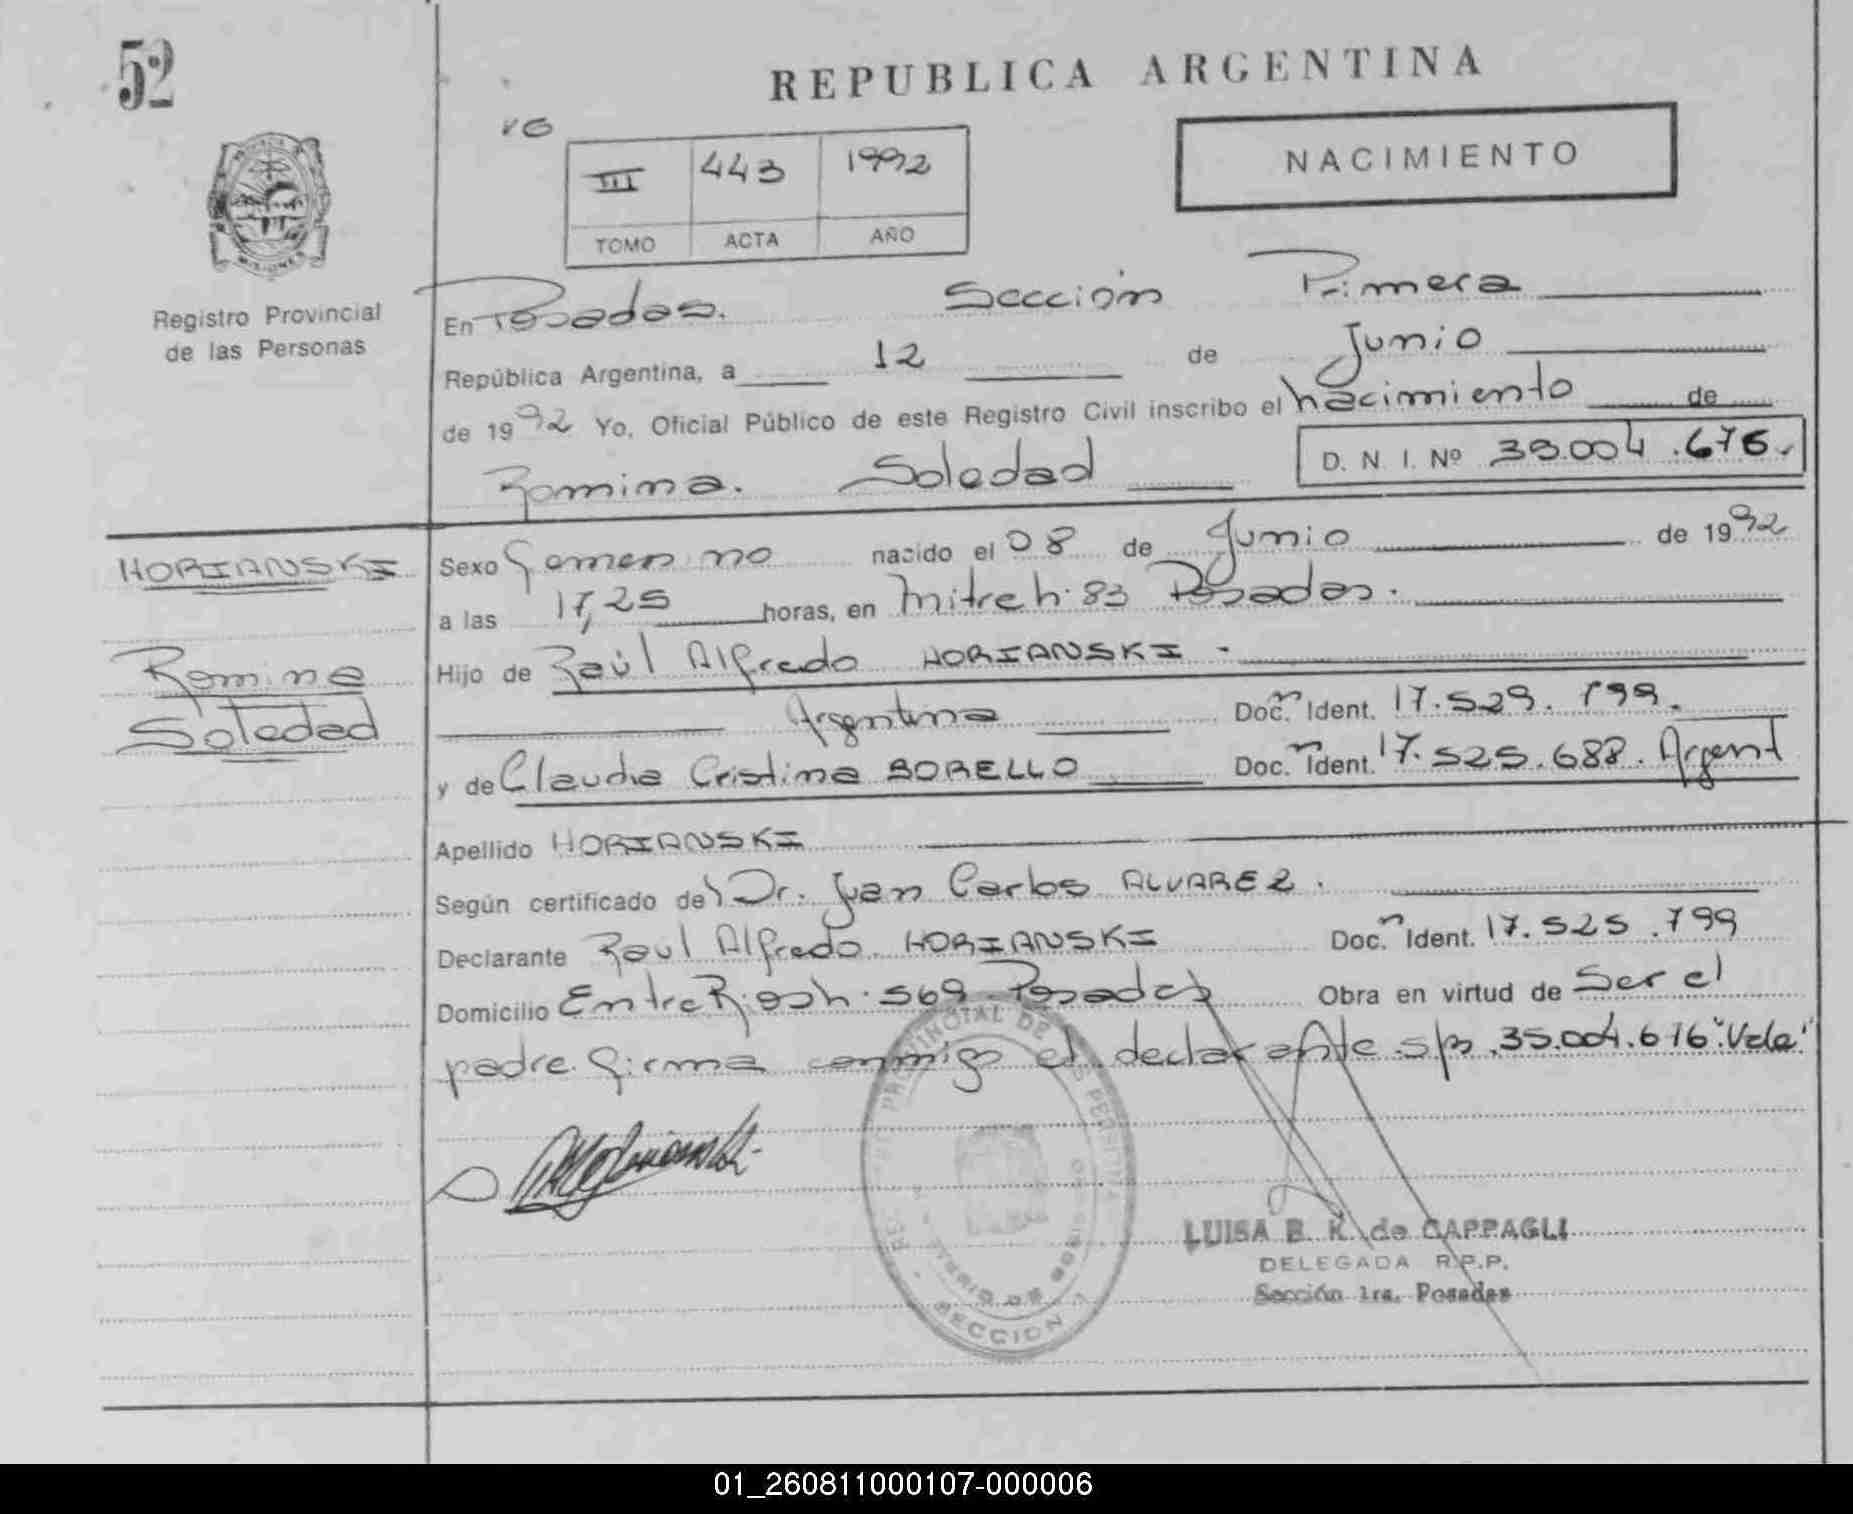 52
REPUBLICA ARGENTINA
VG
III 443 1992
TOMO ACTA AÑO
NACIMIENTO
MISIONES
Registro Provincial
de las Personas
En Posadas. Sección Primera
República Argentina, a 12 de Junio
de 1992 Yo, Oficial Público de este Registro Civil inscribo el nacimiento de
Romina. Soledad D. N. I. Nº 35.004.676.
HORIANSKI
Romina
Soledad
Sexo Femenino nacido el 08 de Junio de 1992
a las 17,25 horas, en Mitre h. 83 Posadas.
Hijo de Raúl Alfredo HORIANSKI.
Argentina Doc. Ident. 17.529.799.
y de Claudia Cristina BORELLO Doc. Ident. 17.525.688. Argent
Apellido HORIANSKI
Según certificado del Dr. Juan Carlos ALVAREZ.
Declarante Raul Alfredo HORIANSKI Doc. Ident. 17.525.799
Domicilio Entre Rios h. 569 Posadas Obra en virtud de Ser el
padre firma conmigo el declarante s/b 35.004.676 "Vale"
REG. PROVINCIAL DE LAS PERSONAS
SECCION 1
LUISA B. K. de CAPPAGLI
DELEGADA R.P.P.
Sección 1ra. Posadas
01_260811000107-000006